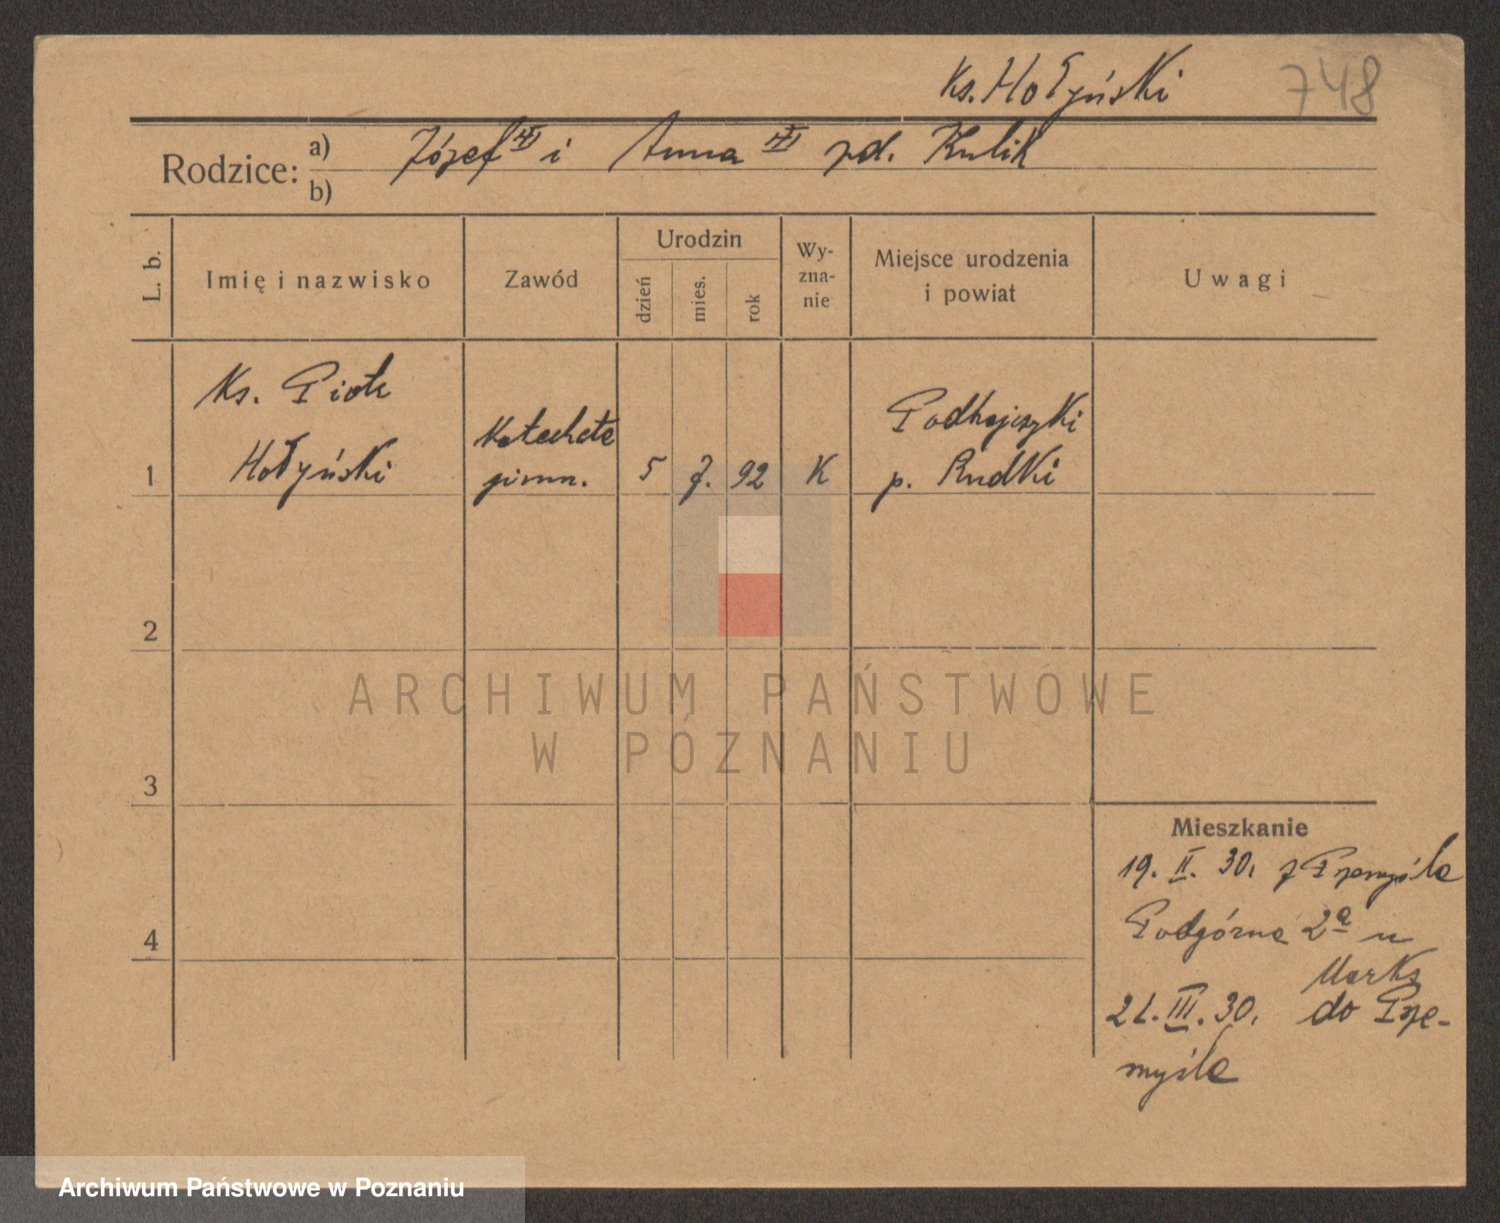 Ks. Hołyński 748
Rodzice: a) Józef i Anna zd. Kulik
b)
L. b. Imię i nazwisko Zawód Urodzin dzień mies. rok Wy-zna-nie Miejsce urodzenia i powiat Uwagi
Ks. Piotr
Hołyński
Katecheta
gimn.
1 5 7. 92 K
Podhajczyki
p. Rudki
2
3
4
ARCHIWUM PAŃSTWOWE
W POZNANIU
Mieszkanie
19. II. 30. z Przemyśla
Podgórna 2a u
Marks
21. III. 30. do Prze-
myśla
Archiwum Państwowe w Poznaniu